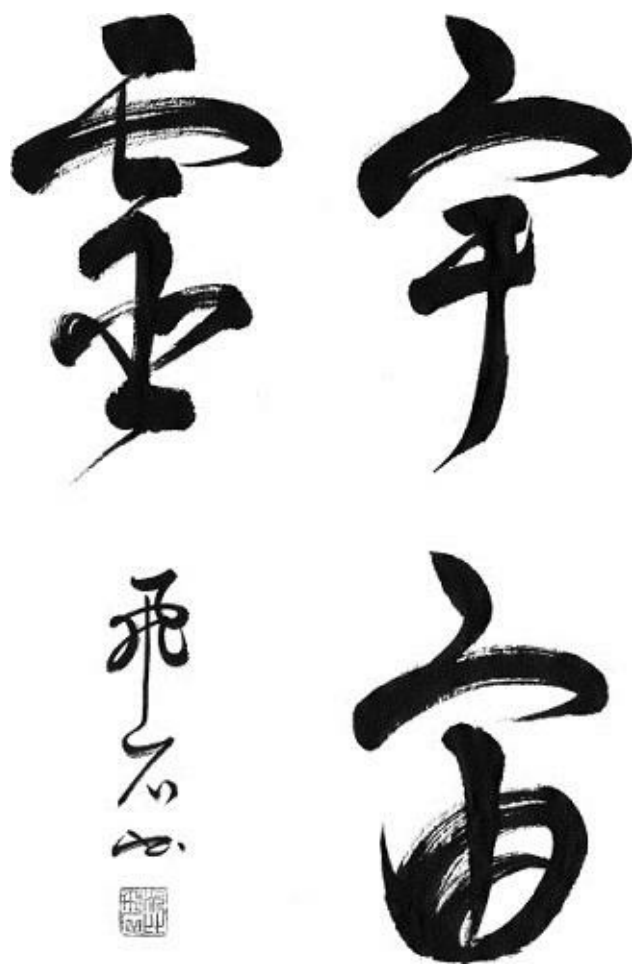 宇宙
霊
飛石書